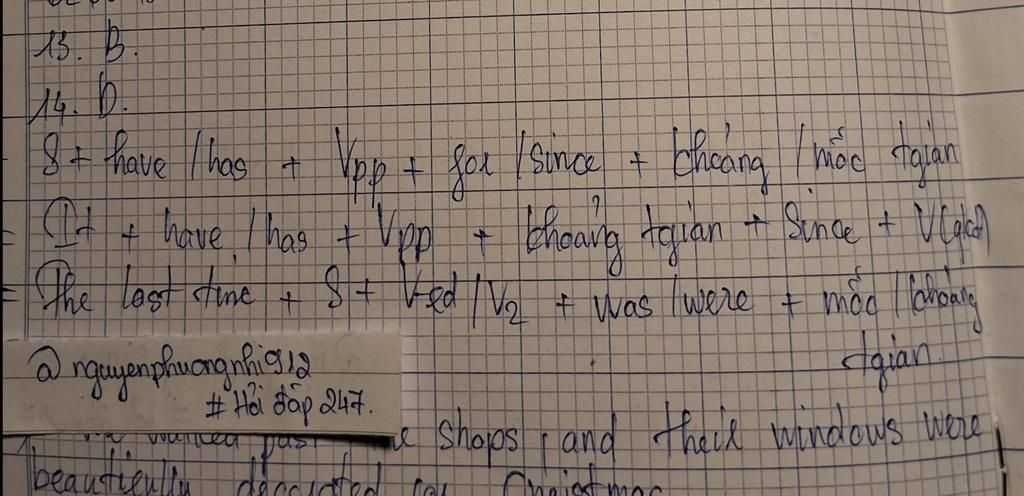 13. B.
14. D.
- S + have / has + Vpp + for / since + khoảng / mốc tgian
= It + have / has + Vpp + khoảng tgian + Since + V(qkđ)
= The last time + S + V-ed / V2 + was / were + mốc / khoảng
tgian.
@ nguyenphuongnhi912
# Hỏi đáp 247.
shops, and their windows were
beautifully decorated for Christmas